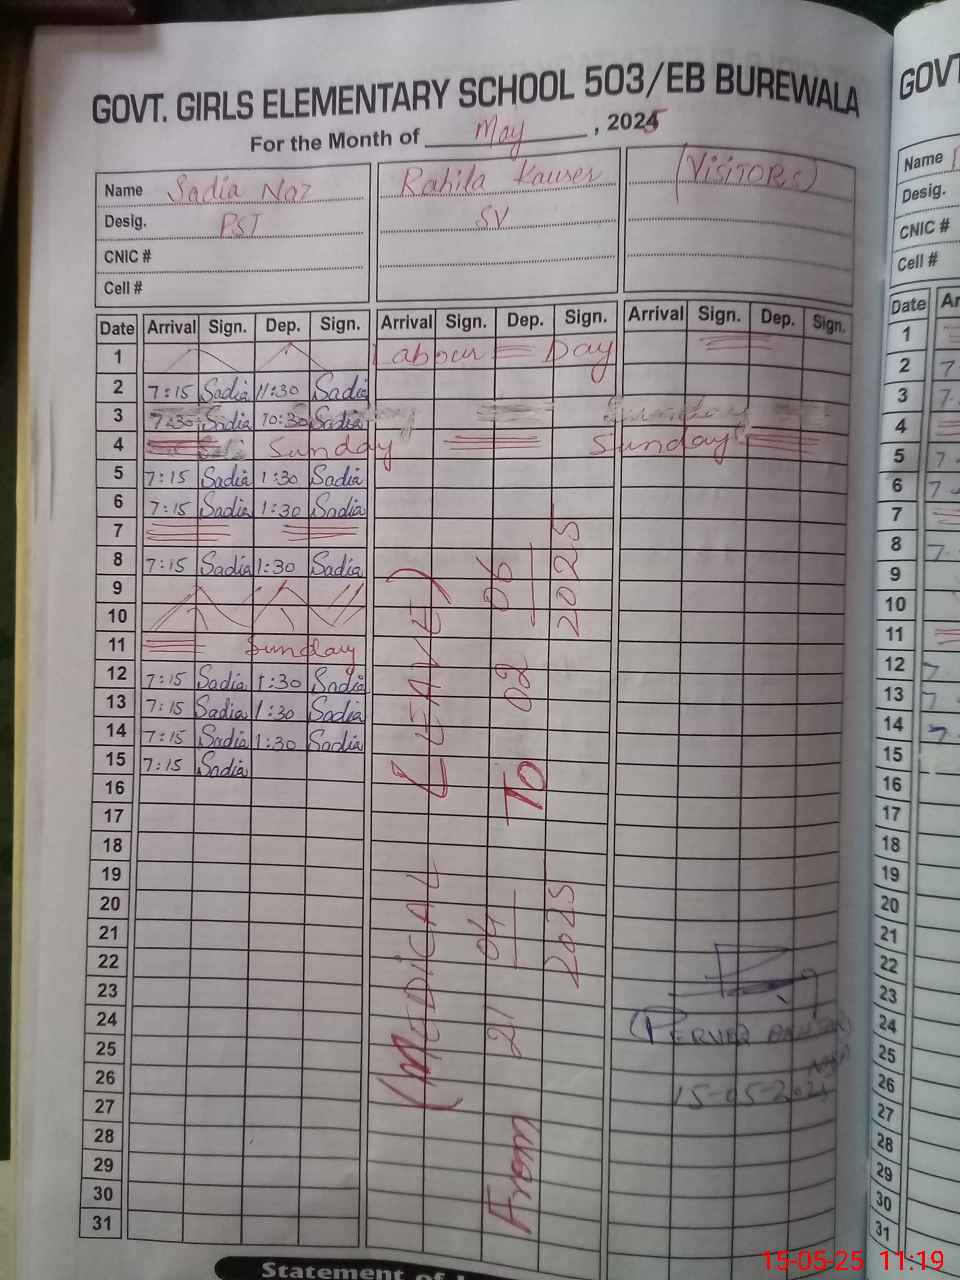 GOVT. GIRLS ELEMENTARY SCHOOL 503/EB BUREWALA
For the Month of May, 2025
Name Sadia Naz Rahila Kauser (VISITORS)
Desig. PST SV
CNIC #
Cell #
Date Arrival Sign. Dep. Sign. Arrival Sign. Dep. Sign. Arrival Sign. Dep. Sign.
1 Labour Day
2 7:15 Sadia 11:30 Sadia
3 7:30 Sadia 10:30 Sadia
4 Sunday Sunday
5 7:15 Sadia 1:30 Sadia
6 7:15 Sadia 1:30 Sadia
7
8 7:15 Sadia 1:30 Sadia
9
10
11 Sunday
12 7:15 Sadia 1:30 Sadia
13 7:15 Sadia 1:30 Sadia
14 7:15 Sadia 1:30 Sadia
15 7:15 Sadia
16
17
18
19
20
21
22
23
24
25
26
27
28
29
30
31
(MEDICAL LEAVE)
From 21 04 2025 To 02 06 2025
15-05-2025
Statement of
GOVT
Name
Desig.
CNIC #
Cell #
Date Ar
1
2 7
3 7
4
5 7
6 7
7
8 7
9
10
11
12 7
13 7
14 7
15
16
17
18
19
20
21
22
23
24
25
26
27
28
29
30
31
15-05-25 11:19